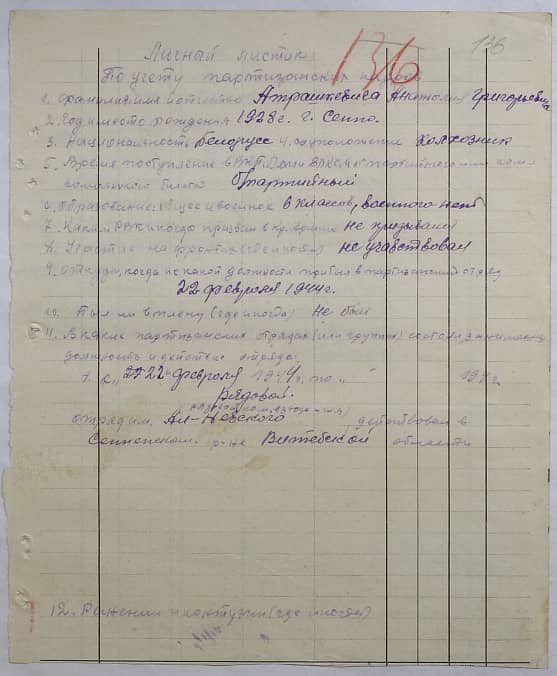 136
136
Личный листок
По учету партизанских кадров
1. Фамилия имя отчество Атрашкевича Анатолия Григорьевича
2. Год и место рождения 1928 г. г. Сенно.
3. Национальность белорусс 4. соцположение колхозник
5. Время поступления в ВКП(б) или ВЛКСМ № партийного или комсо
мольского билета б/партийный
6. Образование: общее и военное 6 классов, военного нет
7. Каким РВК и когда призван в кр. армию не призывался
8. Участие на фронтах (где и когда) не учавствовал
9. Откуда, когда и с какой должности прибыл в партизанский отряд
22 февраля 1944 г.
10. Был ли в плену (где и когда) не был
11. В каких партизанских отрядах (или группах) состоял, занимаемую
должность и действие отряда:
1. с „22" февраля 1944 г. по „ " 194 г.
Рядовой.
отряд им. Ал-Невского действовал в
Сенненском р-не Витебской области
12. Ранения и контузии (где и когда)